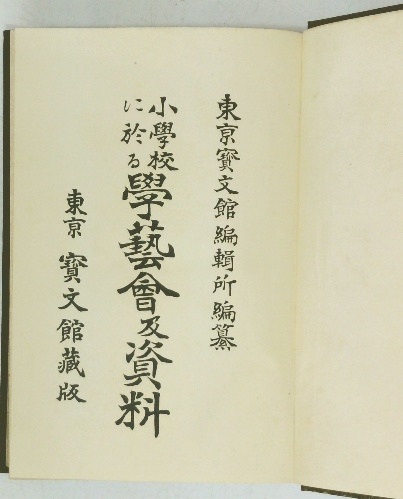 東京寳文館編輯所編纂
小學校
に於る
學藝會及資料
東京 寳文館藏版